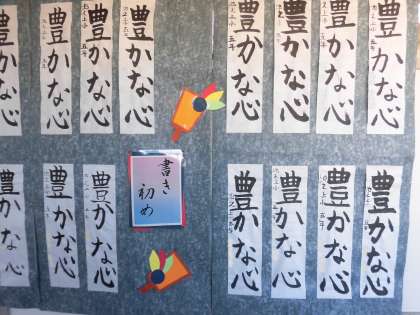 豊かな心
豊かな心
豊かな心
豊かな心
豊かな心
豊かな心
豊かな心
豊かな心
書き
初め
豊かな心
豊かな心
豊かな心
豊かな心
豊かな心
豊かな心
豊かな心